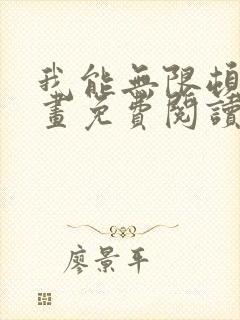 我能無限頓
畫免費閱讀
廖景平